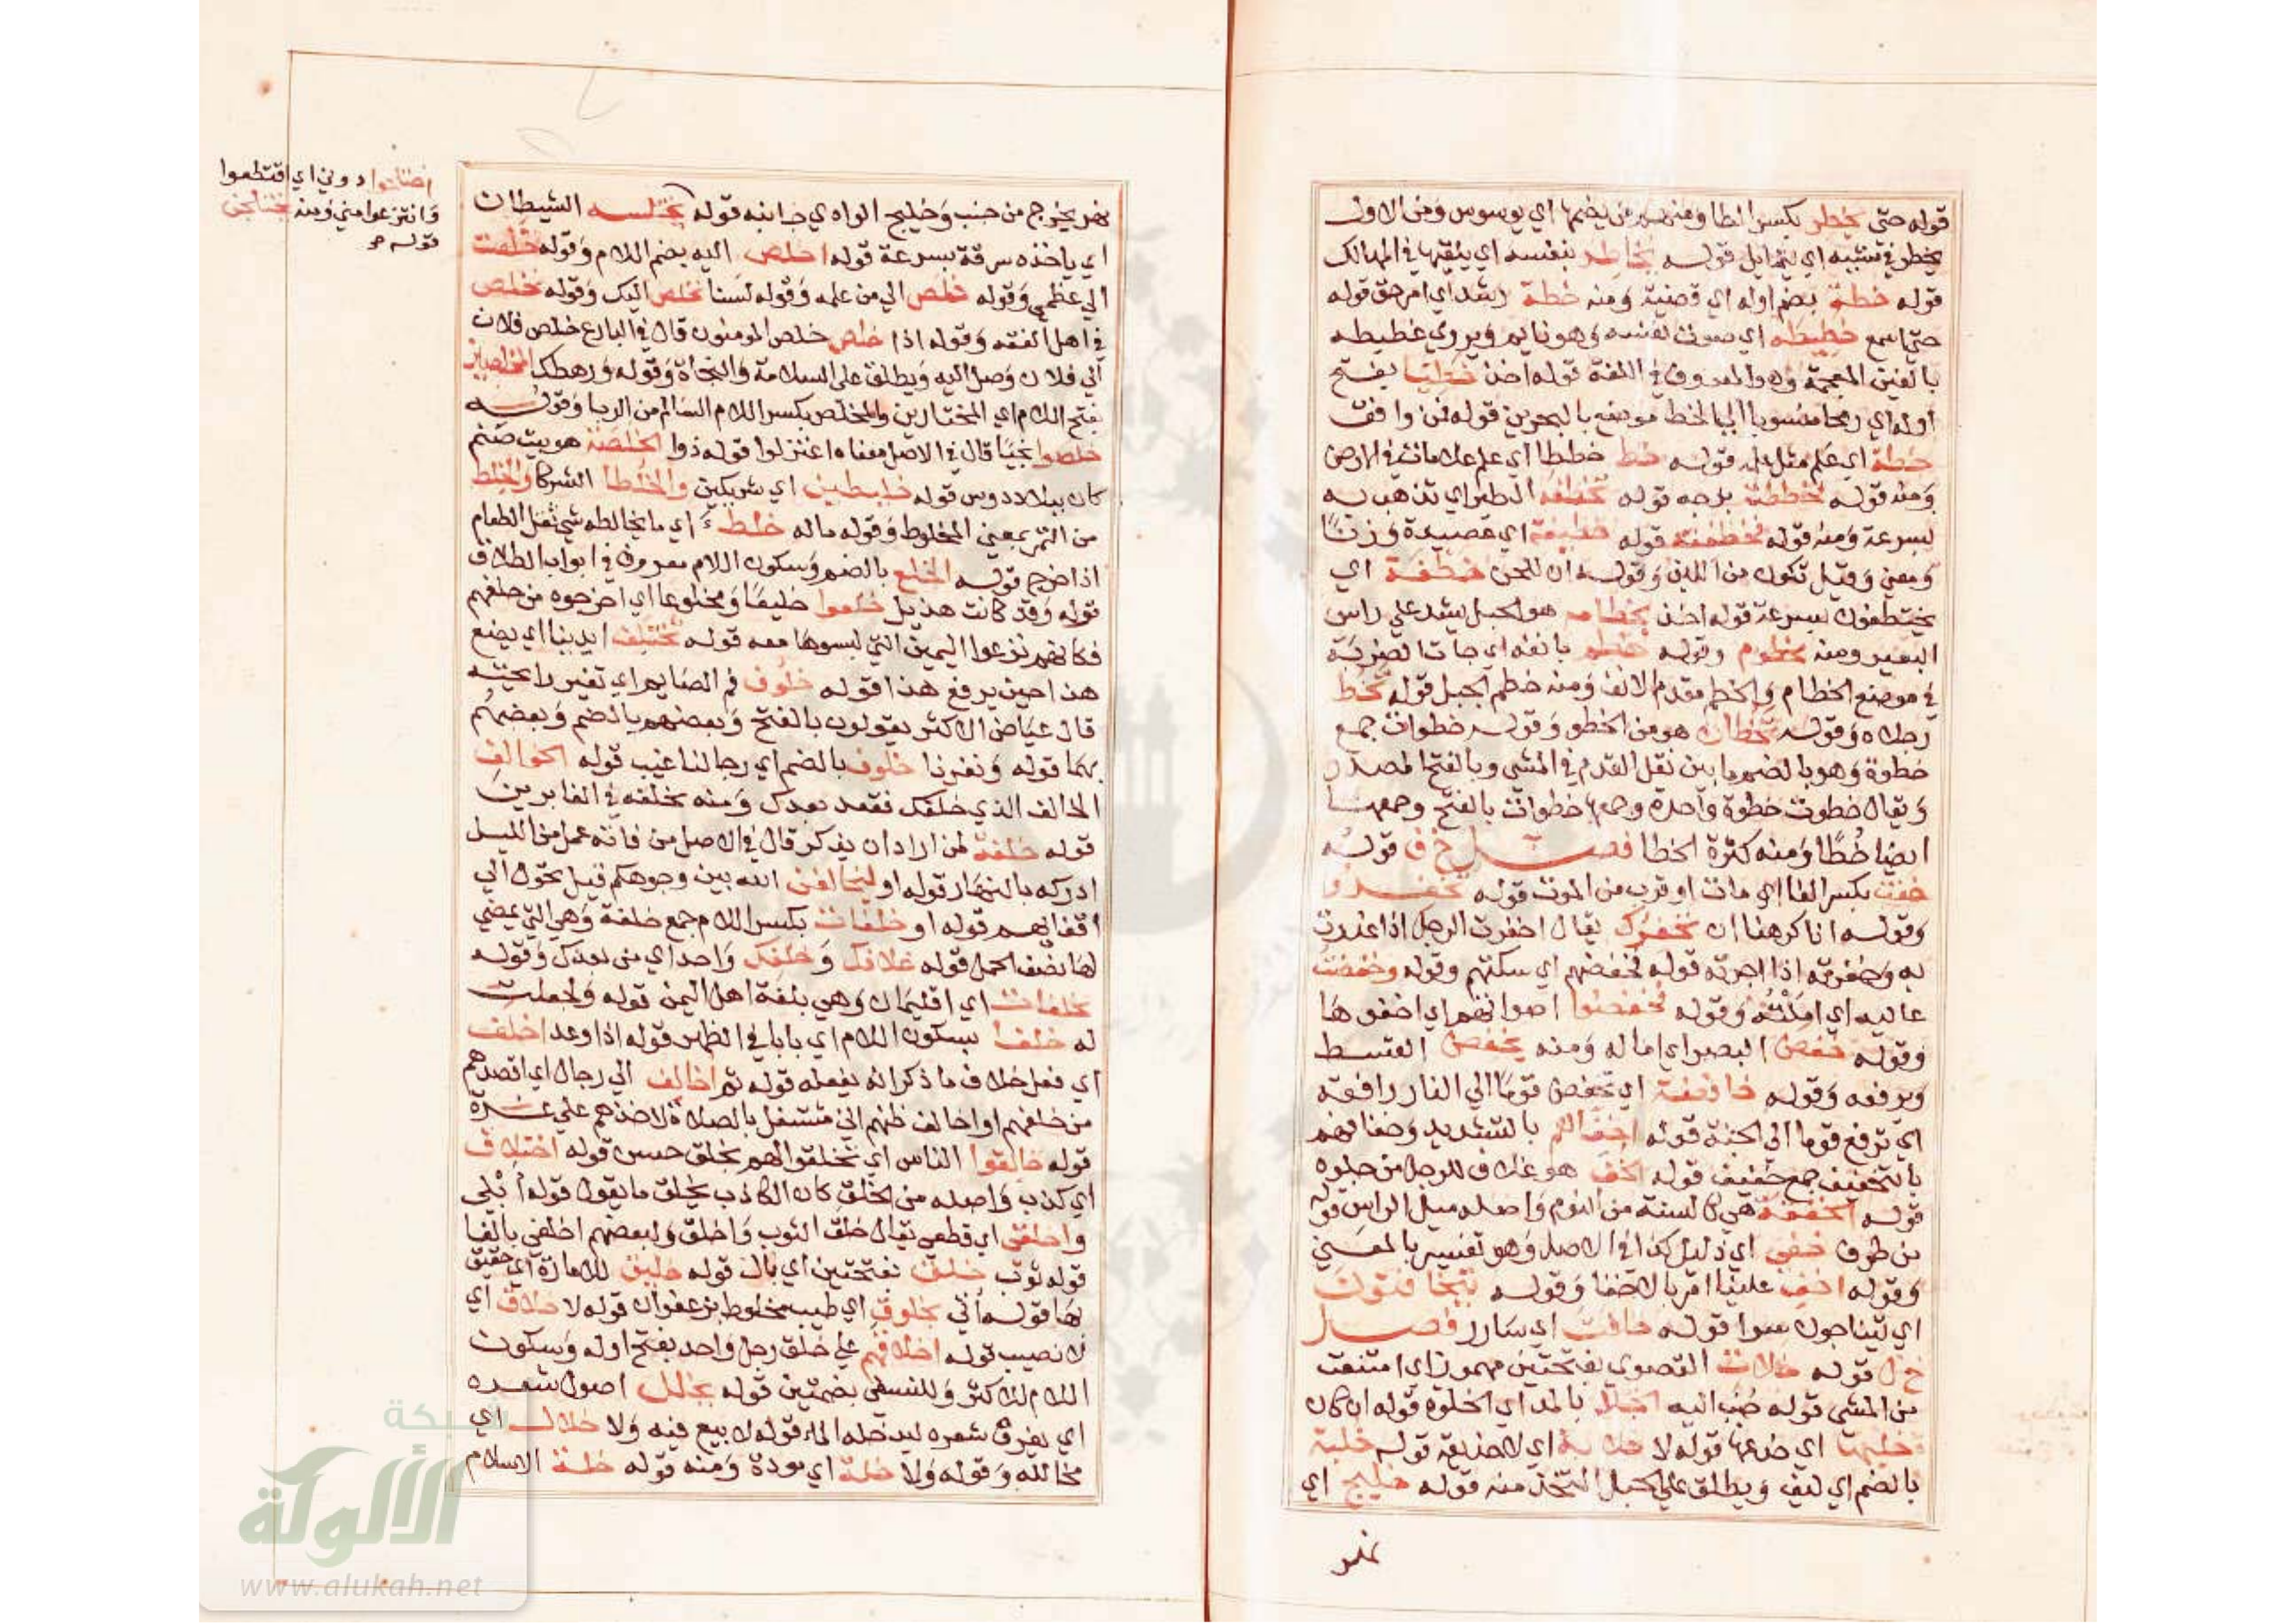 قوله حتى يخطر بكسر الطا ومنهم من يضمها اي يوسوس ومن الاول
يخطر في مشيه اي يتمايل قوله يخاطر بنفسه اي يلقيها في المهالك
قوله خطة بضم اوله اي قضية ومنه خطة رشد اي امر حق قوله
حتى سمع خطيطه اي صوت نفسه وهو نايم ويروي غطيطه
بالغين المعجمة وهو المعروف في اللغة قوله اخذ خطيا بفتح
اوله اي رمحا منسوبا الي الخط موضع بالبحرين قوله فمن وافق
خطه اي علم مثل علمه قوله خط خططا اي علم علامات في الارض
ومنه قوله فخططت بزجه قوله تخطفه الطير اي تذهب به
بسرعة ومنه قوله فخطفته قوله خطيفة اي عصيدة وزنًا
ومعني وقيل تكون من اللبن وقوله ان للجن خطفة اي
يختطفون بسرعة قوله اخذ بخطامه هو الحبل يشد علي راس
البعير ومنه مخطوم وقوله خطم بانفه اي جات الضربة
في موضع الخطام والخطم مقدم الانف ومنه خطم الجبل قوله تخط
رجلاه وقوله تخطان هو من الخطو وقوله خطوات جمع
خطوة وهو بالضم ما بين نقل القدم في المشي وبالفتح المصدر
ويقال خطوت خطوة واحدة وجمعها خطوات بالفتح وجمعها
ايضا خُطًا ومنه كثرة الخطا فصل خ ف قوله
خفت بكسر الفا اي مات او قرب من الموت قوله تخفروا
وقوله انا كرهنا ان نخفرك يقال اخفرت الرجل اذا غدرت
به وخفرته اذا اجرته قوله فخفضهم اي سكتهم وقوله وخفضت
عاليه اي املته وقوله فخفضوا اصواتهم اي اخفوها
وقوله خفض البصر اي اماله ومنه يخفض القسط
ويرفعه وقوله خافضة اي تخفض قوما الي النار رافعة
اي ترفع قوما الي الجنة قوله اخفاؤهم بالتشديد وخفافهم
بالتخفيف جمع خفيف قوله الخف هو غلاف للرجل من جلود
قوله الخفقة هي كالسنة من النوم واصله ميل الراس قوله
من طرف خفي اي ذليل كذا في الاصل وهو تفسير بالمعني
وقوله اخف علينا امر بالاخفا وقوله يتخافتون
اي يتناجون سرا قوله خافت اي سارر فصل
خ ل قوله خلات القصوي بفتحتين مهموز اي امتنعت
من المشي قوله حُبّب اليه الخلا بالمد اي الخلوة قوله ان كان
خلبها اي خدعها قوله لا خلابة اي لا خديعة قوله خلبة
بالضم اي ليف ويطلق علي الحبل المتخذ منه قوله خليج اي
نهر
نهر يخرج من جنب وخليج الوادي جانبه قوله يختلسه الشيطان
اي ياخذه سرقة بسرعة قوله اخلص اليه بضم اللام وقوله خلصت
الي عظمي وقوله خلص الي من علمه وقوله لسنا نخلص اليك وقوله نخلص
في اهل الفقه وقوله اذا خلص خلص المومنون قال في البارع خلص فلان
الي فلان وصل اليه ويطلق علي السلامة والنجاة وقوله ورهطك المخلصين
بفتح اللام اي المختارين والمخلص بكسر اللام السالم من الريا وقوله
خلصوا نجيا قال في الاصل معناه اعتزلوا قوله ذوا الخلصة هو بيت صنم
كان ببلاد دوس قوله خليطين اي شريكين والخلطا الشركا والخلط
من التمر بمعني المخلوط وقوله ماله خلط اي ما يخالطه شي ثفل الطعام
اذا خرج قوله الخلع بالضم وسكون اللام معروف في ابواب الطلاق
قوله وقد كانت هذيل خلعوا خليعًا ومخلوعا اي اخرجوه من حلفهم
فكانهم نزعوا اليمين التي لبسوها معه قوله تختلف ايدينا اي يضع
هذا حين يرفع هذا قوله خلوف فم الصايم اي تغير رايحته
قال عياض الاكثر يقولون بالفتح وبعضهم بالضم وبعضهم
بهما قوله ونفرنا خلوف بالضم اي رجالنا غيب قوله الخوالف
الخالف الذي خلفك فقعد بعدك ومنه يخلفه في الغابرين
قوله خلفة لمن اراد ان يذكر قال في الاصل من فاته عمل من الليل
ادركه بالنهار قوله او ليخالفن الله بين وجوهكم قيل تحول الي
اقفائهم قوله او خلفات بكسر اللام جمع خلفة وهي التي يمضي
لها نصف الحمل قوله خلافك وخلفك واحد اي من بعدك وقوله
مخلفات اي اقليمان وهي بلغة اهل اليمن قوله ولجعلت
له خلفا بسكون اللام اي بابا في الظهر قوله اذا وعد اخلف
اي فعل خلاف ما ذكر انه يفعله قوله ثم اخالف الي رجال اي اقصدهم
من خلفهم او اخالف ظنهم اني مشتغل بالصلاة لاخذهم علي غرة
قوله خالقوا الناس اي تخلقوا لهم بخلق حسن قوله اختلاق
اي كذب واصله من الخلق كان الكاذب يخلق ما يقول قوله ابلي
واخلقي اي قطعي يقال خلق الثوب واخلق ولبعضهم اخلفي بالفا
قوله ثوب خلق بفتحتين اي بال قوله خليق للامارة اي حقيق
بها قوله اتي بخلوق اي طيب مخلوط بزعفران قوله لا خلاق اي
لا نصيب قوله اخلاقهم علي خلق رجل واحد بفتح اوله وسكون
اللام للاكثر وللنسفي بضمتين قوله يخلل اصول شعره
اي يفرق شعره ليدخله الماء قوله لا بيع فيه ولا خلال اي
مخاللة وقوله ولا خلة اي مودة ومنه قوله خلة الاسلام
اختلجوا دوني اي اقتطعوا
وانتزعوا مني ومنه يختلجن
قوله
شبكة
الألوكة
www.alukah.net